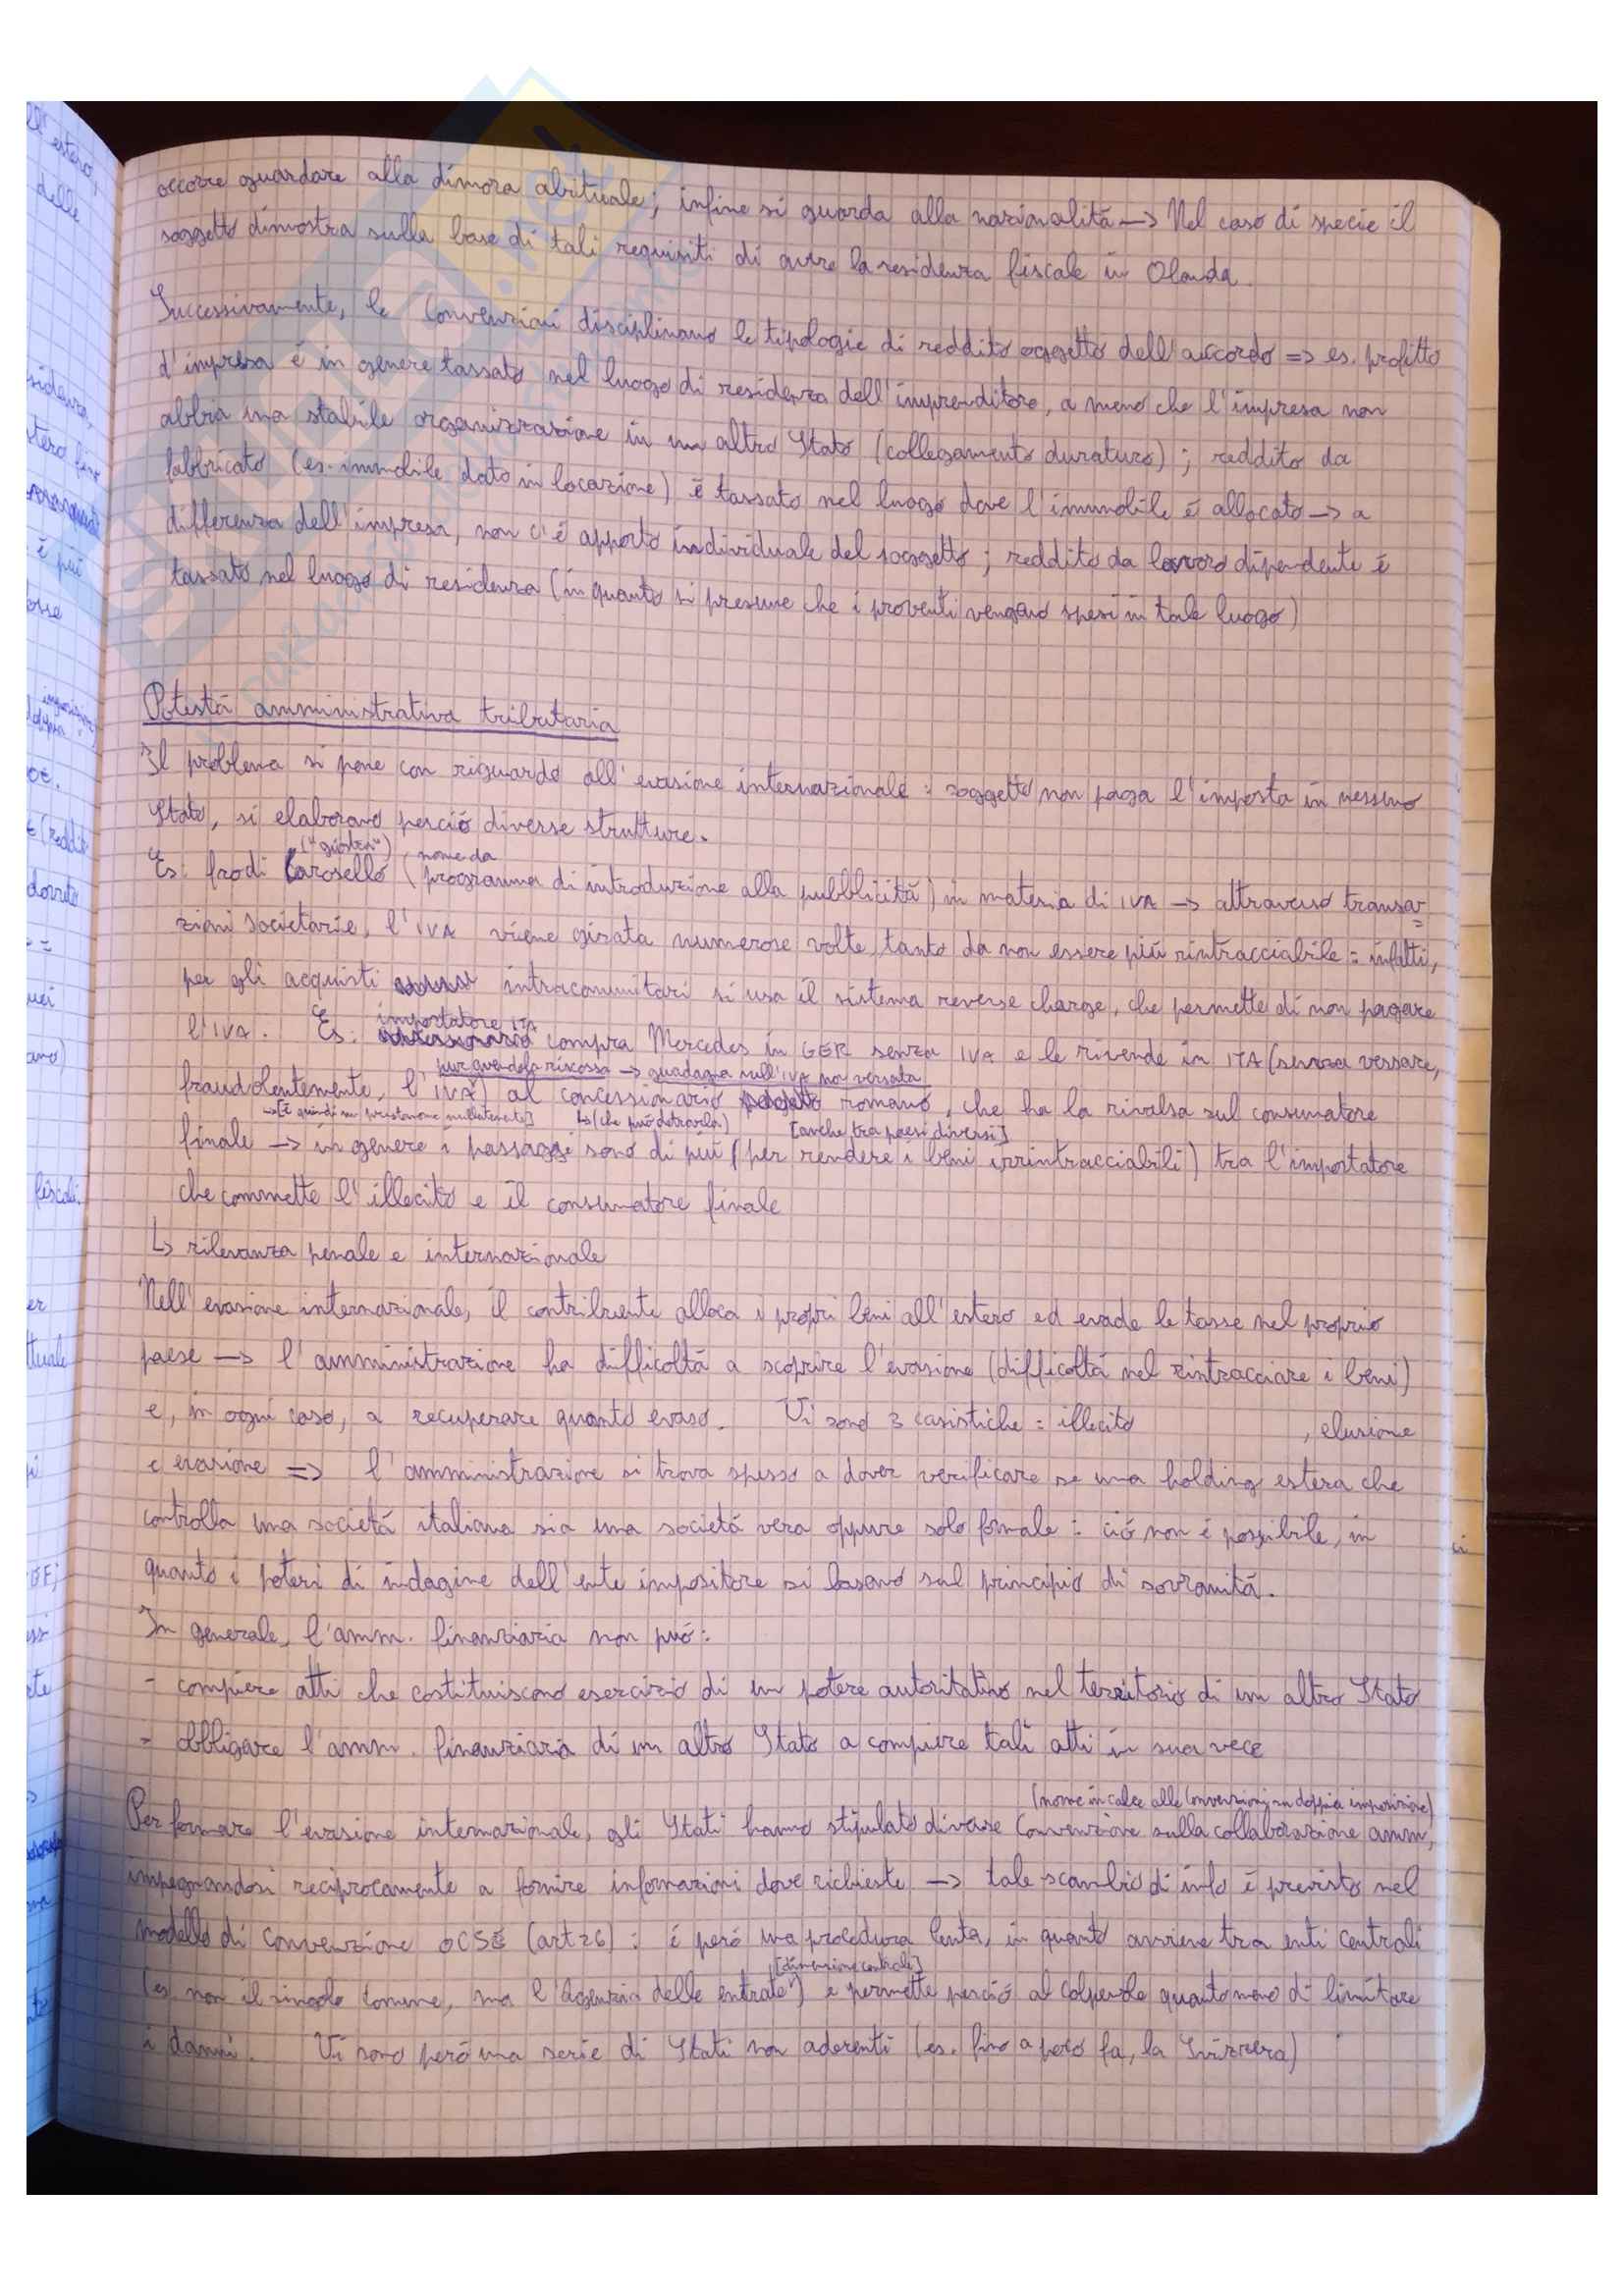 occorre guardare alla dimora abituale; infine si guarda alla nazionalità → Nel caso di specie il
soggetto dimostra sulla base di tali requisiti di avere la residenza fiscale in Olanda.
Successivamente, le Convenzioni disciplinano le tipologie di reddito oggetto dell'accordo => es. profitto
d'impresa è in genere tassato nel luogo di residenza dell'imprenditore, a meno che l'impresa non
abbia una stabile organizzazione in un altro Stato (collegamento duraturo); reddito da
fabbricato (es. immobile dato in locazione) è tassato nel luogo dove l'immobile è allocato → a
differenza dell'impresa, non c'è apporto individuale del soggetto; reddito da lavoro dipendente è
tassato nel luogo di residenza (in quanto si presume che i proventi vengano spesi in tale luogo)
Potestà amministrativa tributaria
Il problema si pone con riguardo all'evasione internazionale: soggetto non paga l'imposta in nessuno
Stato, si elaborano perciò diverse strutture.
("giostra") nome da
Es: frodi Carosello (programma di introduzione alla pubblicità) in materia di IVA → attraverso transa-
zioni societarie, l'IVA viene girata numerose volte, tanto da non essere più rintracciabile: infatti,
per gli acquisti intracomunitari si usa il sistema reverse charge, che permette di non pagare
importatore ITA
l'IVA. Es: compra Mercedes in GER senza IVA e le rivende in ITA (senza versare,
pur avendola riscossa → guadagna sull'IVA non versata
fraudolentemente, l'IVA) al concessionario romano, che ha la rivalsa sul consumatore
→ [è quindi un prestanome nullatenente] ↳ (che può detrarla) [anche tra paesi diversi]
finale → in genere i passaggi sono di più (per rendere i beni irrintracciabili) tra l'importatore
che commette l'illecito e il consumatore finale
↳ rilevanza penale e internazionale
Nell'evasione internazionale, il contribuente alloca i propri beni all'estero ed evade le tasse nel proprio
paese → l'amministrazione ha difficoltà a scoprire l'evasione (difficoltà nel rintracciare i beni)
e, in ogni caso, a recuperare quanto evaso. Vi sono 3 casistiche: illecito , elusione
e evasione => l'amministrazione si trova spesso a dover verificare se una holding estera che
controlla una società italiana sia una società vera oppure solo formale: ciò non è possibile, in
quanto i poteri di indagine dell'ente impositore si basano sul principio di sovranità.
In generale, l'amm. finanziaria non può:
- compiere atti che costituiscono esercizio di un potere autoritativo nel territorio di un altro Stato
- obbligare l'amm. finanziaria di un altro Stato a compiere tali atti in sua vece
(nome in calce alle Convenzioni su doppia imposizione)
Per fermare l'evasione internazionale, gli Stati hanno stipulato diverse Convenzione sulla collaborazione amm,
impegnandosi reciprocamente a fornire informazioni dove richieste → tale scambio di info è previsto nel
modello di Convenzione OCSE (art 26): è però una procedura lenta, in quanto avviene tra enti centrali
[dimensione centrale]
(es. non il singolo Comune, ma l'Agenzia delle entrate) e permette perciò al colpevole quantomeno di limitare
i danni. Vi sono però una serie di Stati non aderenti (es. fino a poco fa, la Svizzera)